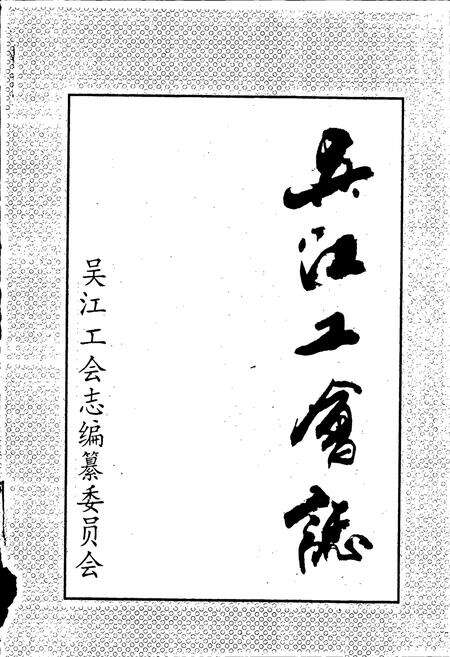 吴江工會誌
吴江工会志编纂委员会